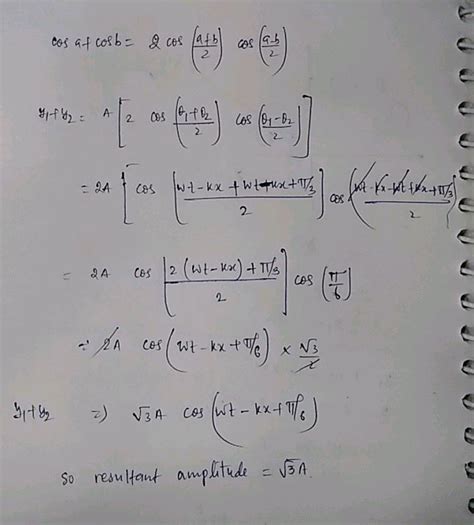 cos a + cos b = 2 cos (a+b/2) cos (a-b/2)
y₁+y₂ = A [2 cos (θ₁+θ₂/2) cos (θ₁-θ₂/2)]
= 2A [cos [wt-kx+wt-kx+π/3 / 2] cos (wt-kx-wt+kx+π/3 / 2)
= 2A cos [2(wt-kx)+π/3 / 2] cos (π/6)
= 2A cos (wt-kx+π/6) × √3/2
y₁+y₂ ⇒ √3A cos (wt-kx+π/6)
so resultant amplitude = √3A.